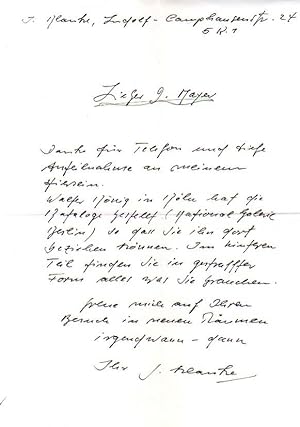 J. Klauke, Ludolf-Camphausenstr. 24
5 K 1
Lieber G. Mayer
Danke für Telefon und tiefe
Anteilnahme an meinem
Walter König in Köln hat die
Kataloge bestellt (National Galerie
Berlin) so daß Sie ihn dort
beziehen können. Im hinteren
Teil finden Sie in geraffter
Form alles was Sie brauchen.
Freue mich auf Ihren
Besuch in neuen Räumen
irgendwann - dann
Ihr J. Klauke